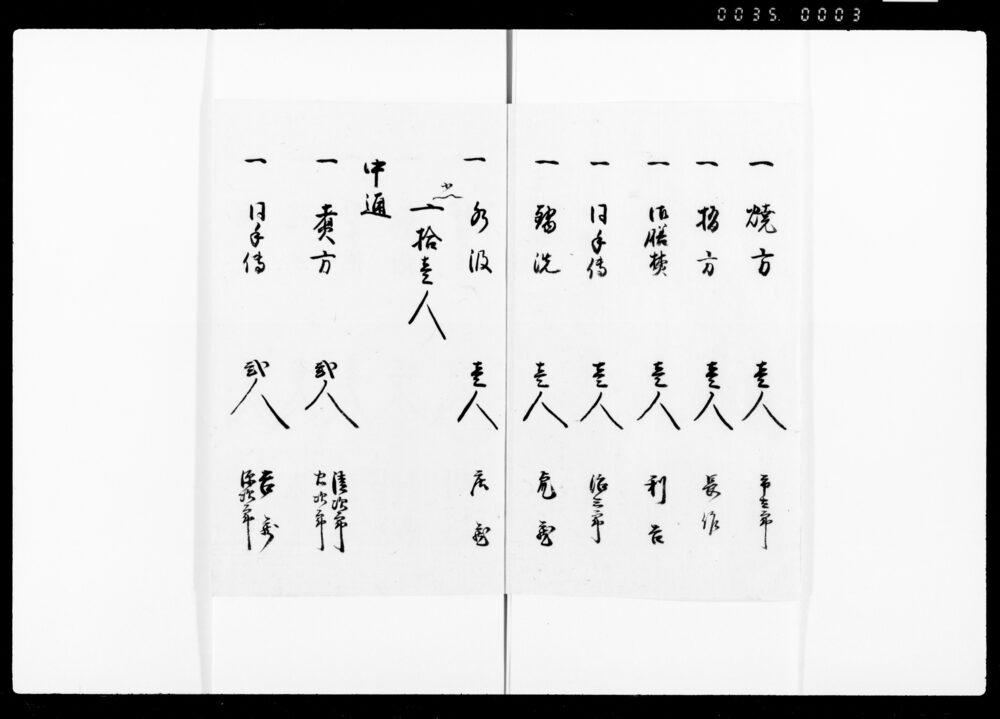 0035. 0003
一 焼方 壱人 市三郎
一 板方 壱人 長作
一 御膳焚 壱人 利吉
一 同手伝 壱人 源三郎
一 鍋洗 壱人 虎蔵
一 水汲 壱人 庄蔵
〆 二拾壱人
中通
一 煮方 弐人 清次郎
同手伝 弐人 吉蔵
源次郎